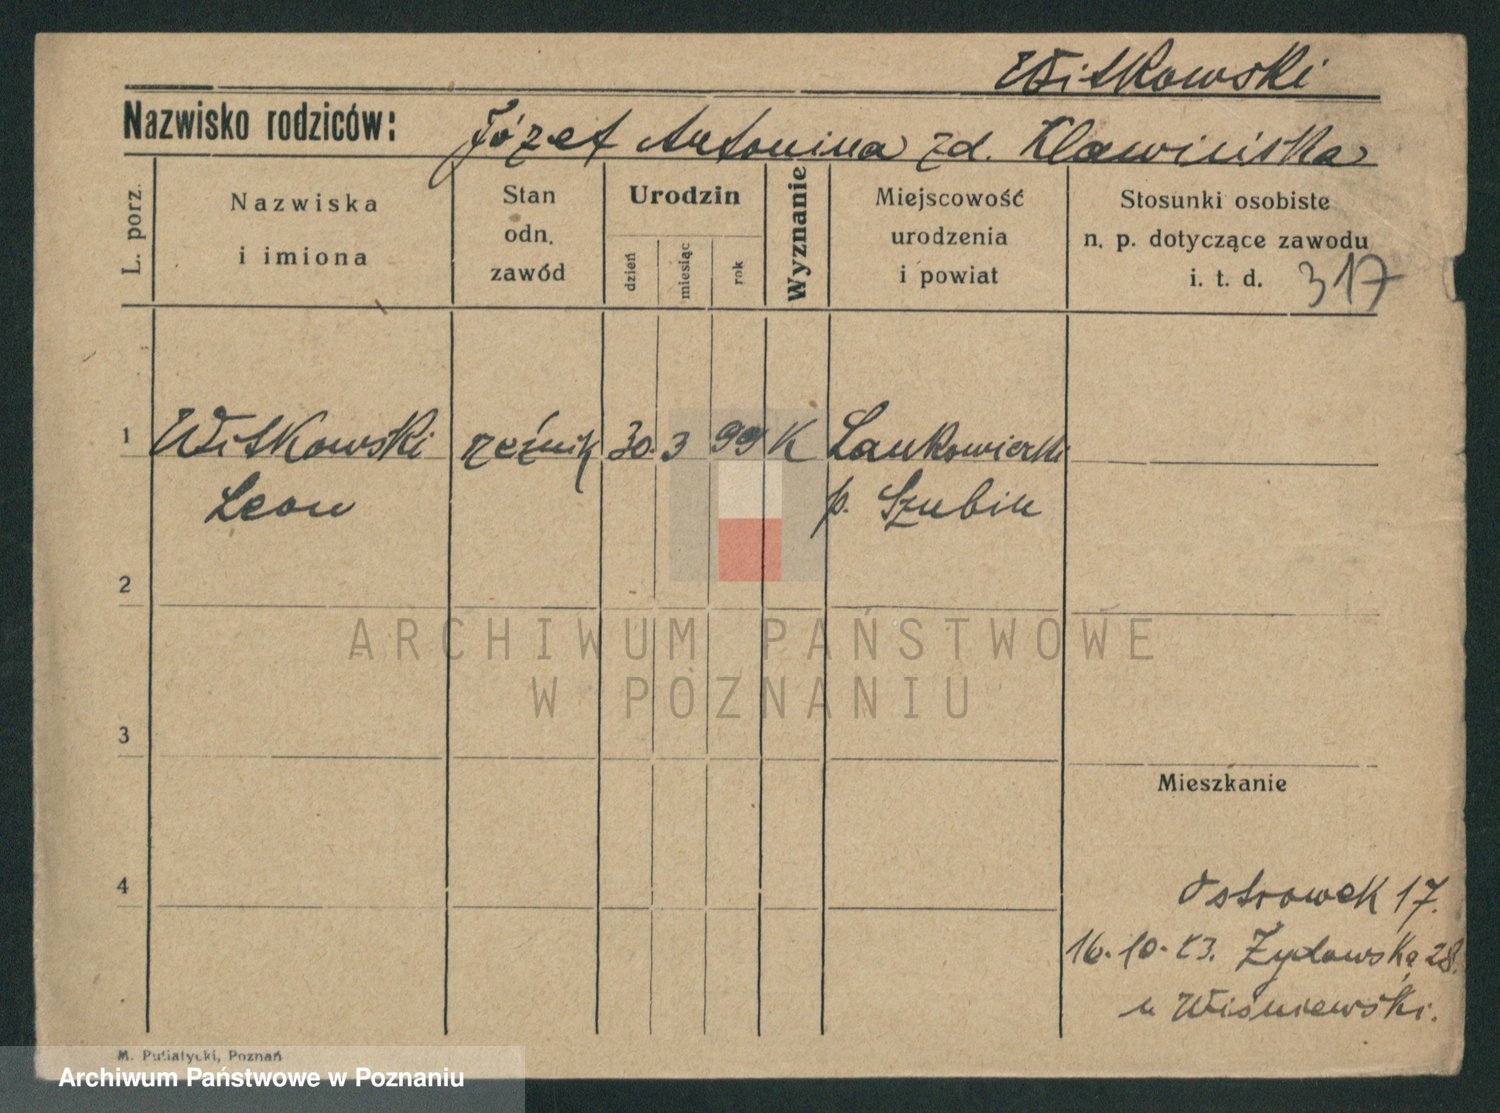 Witkowski
Nazwisko rodziców: Józef Antonina zd. Klawińska
L. porz.
Nazwiska
i imiona
Stan
odn.
zawód
Urodzin
dzień
miesiąc
rok
Wyznanie
Miejscowość
urodzenia
i powiat
Stosunki osobiste
n. p. dotyczące zawodu
i. t. d. 317
1 Witkowski rzeźnik 30. 3 99 K
Leon p. Szubin
2
ARCHIWUM PAŃSTWOWE
W POZNANIU
3
Mieszkanie
4
Ostrowek 17.
16. 10. 23. Żydowska 28.
u Wiśniewski.
M. Putiatycki, Poznań
Archiwum Państwowe w Poznaniu